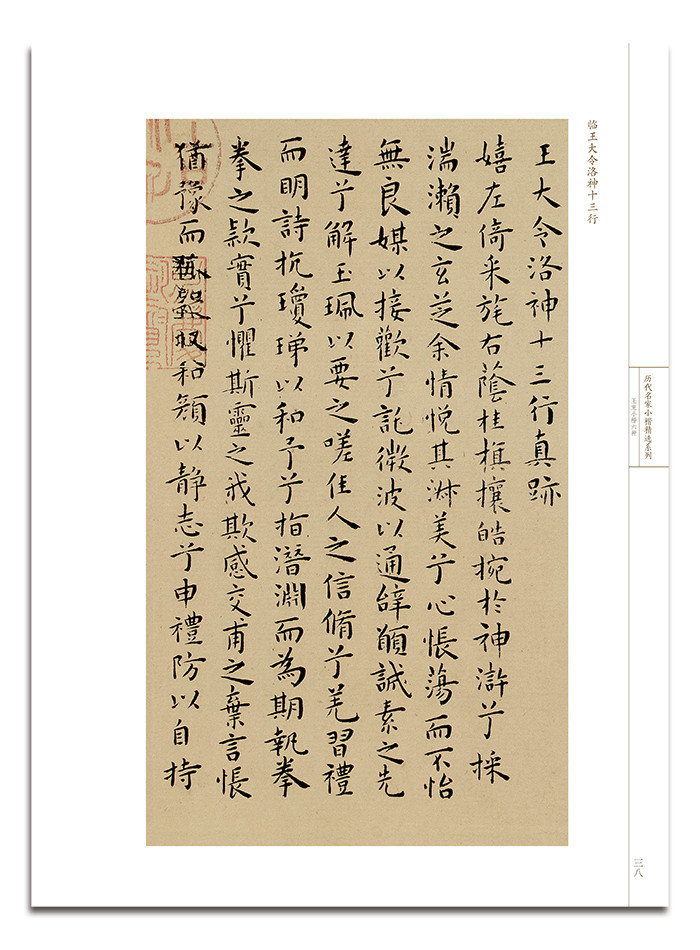 历代名家小楷精选系列
王宠小楷六种
三八
临王大令洛神十三行
王大令洛神十三行真跡
嬉左倚采旄右蔭桂旗攘皓捥於神滸兮採
湍瀨之玄芝余情悅其淑美兮心悵蕩而不怡
無良媒以接歡兮託微波以通辭願誠素之先
達兮解玉珮以要之嗟佳人之信脩兮羌習禮
而明詩抗瓊珶以和予兮指潛淵而為期執拳
拳之款實兮懼斯靈之我欺感交甫之棄言悵
猶豫而狐疑收和顏以靜志兮申禮防以自持